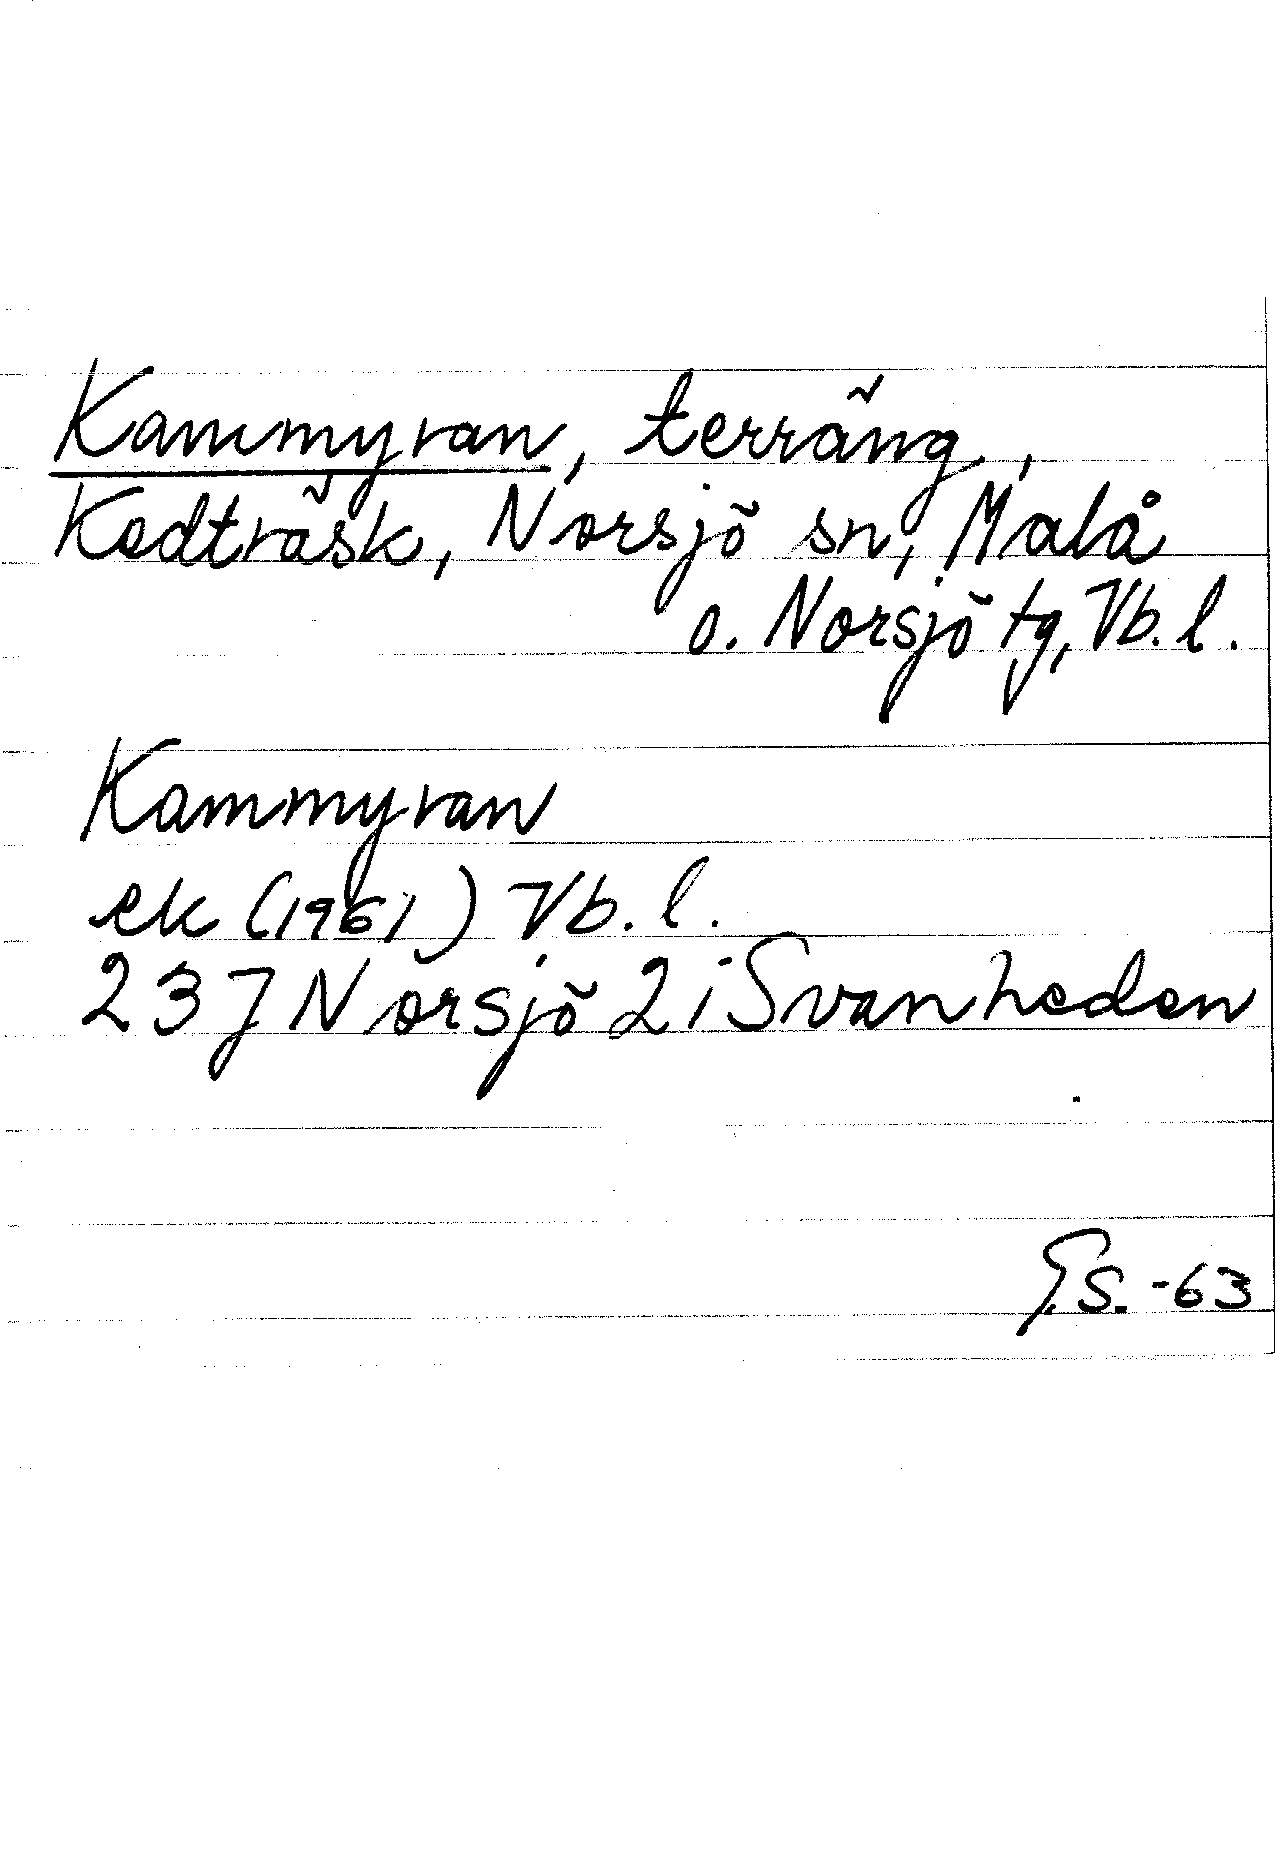 Kammyran, terräng,
Kedträsk, Norsjö sn, Malå
o. Norsjö tg, Vb. l.
Kammyran
ek (1961) Vb. l.
23 J Nörsjö 2 i Svanheden
G.S. -63